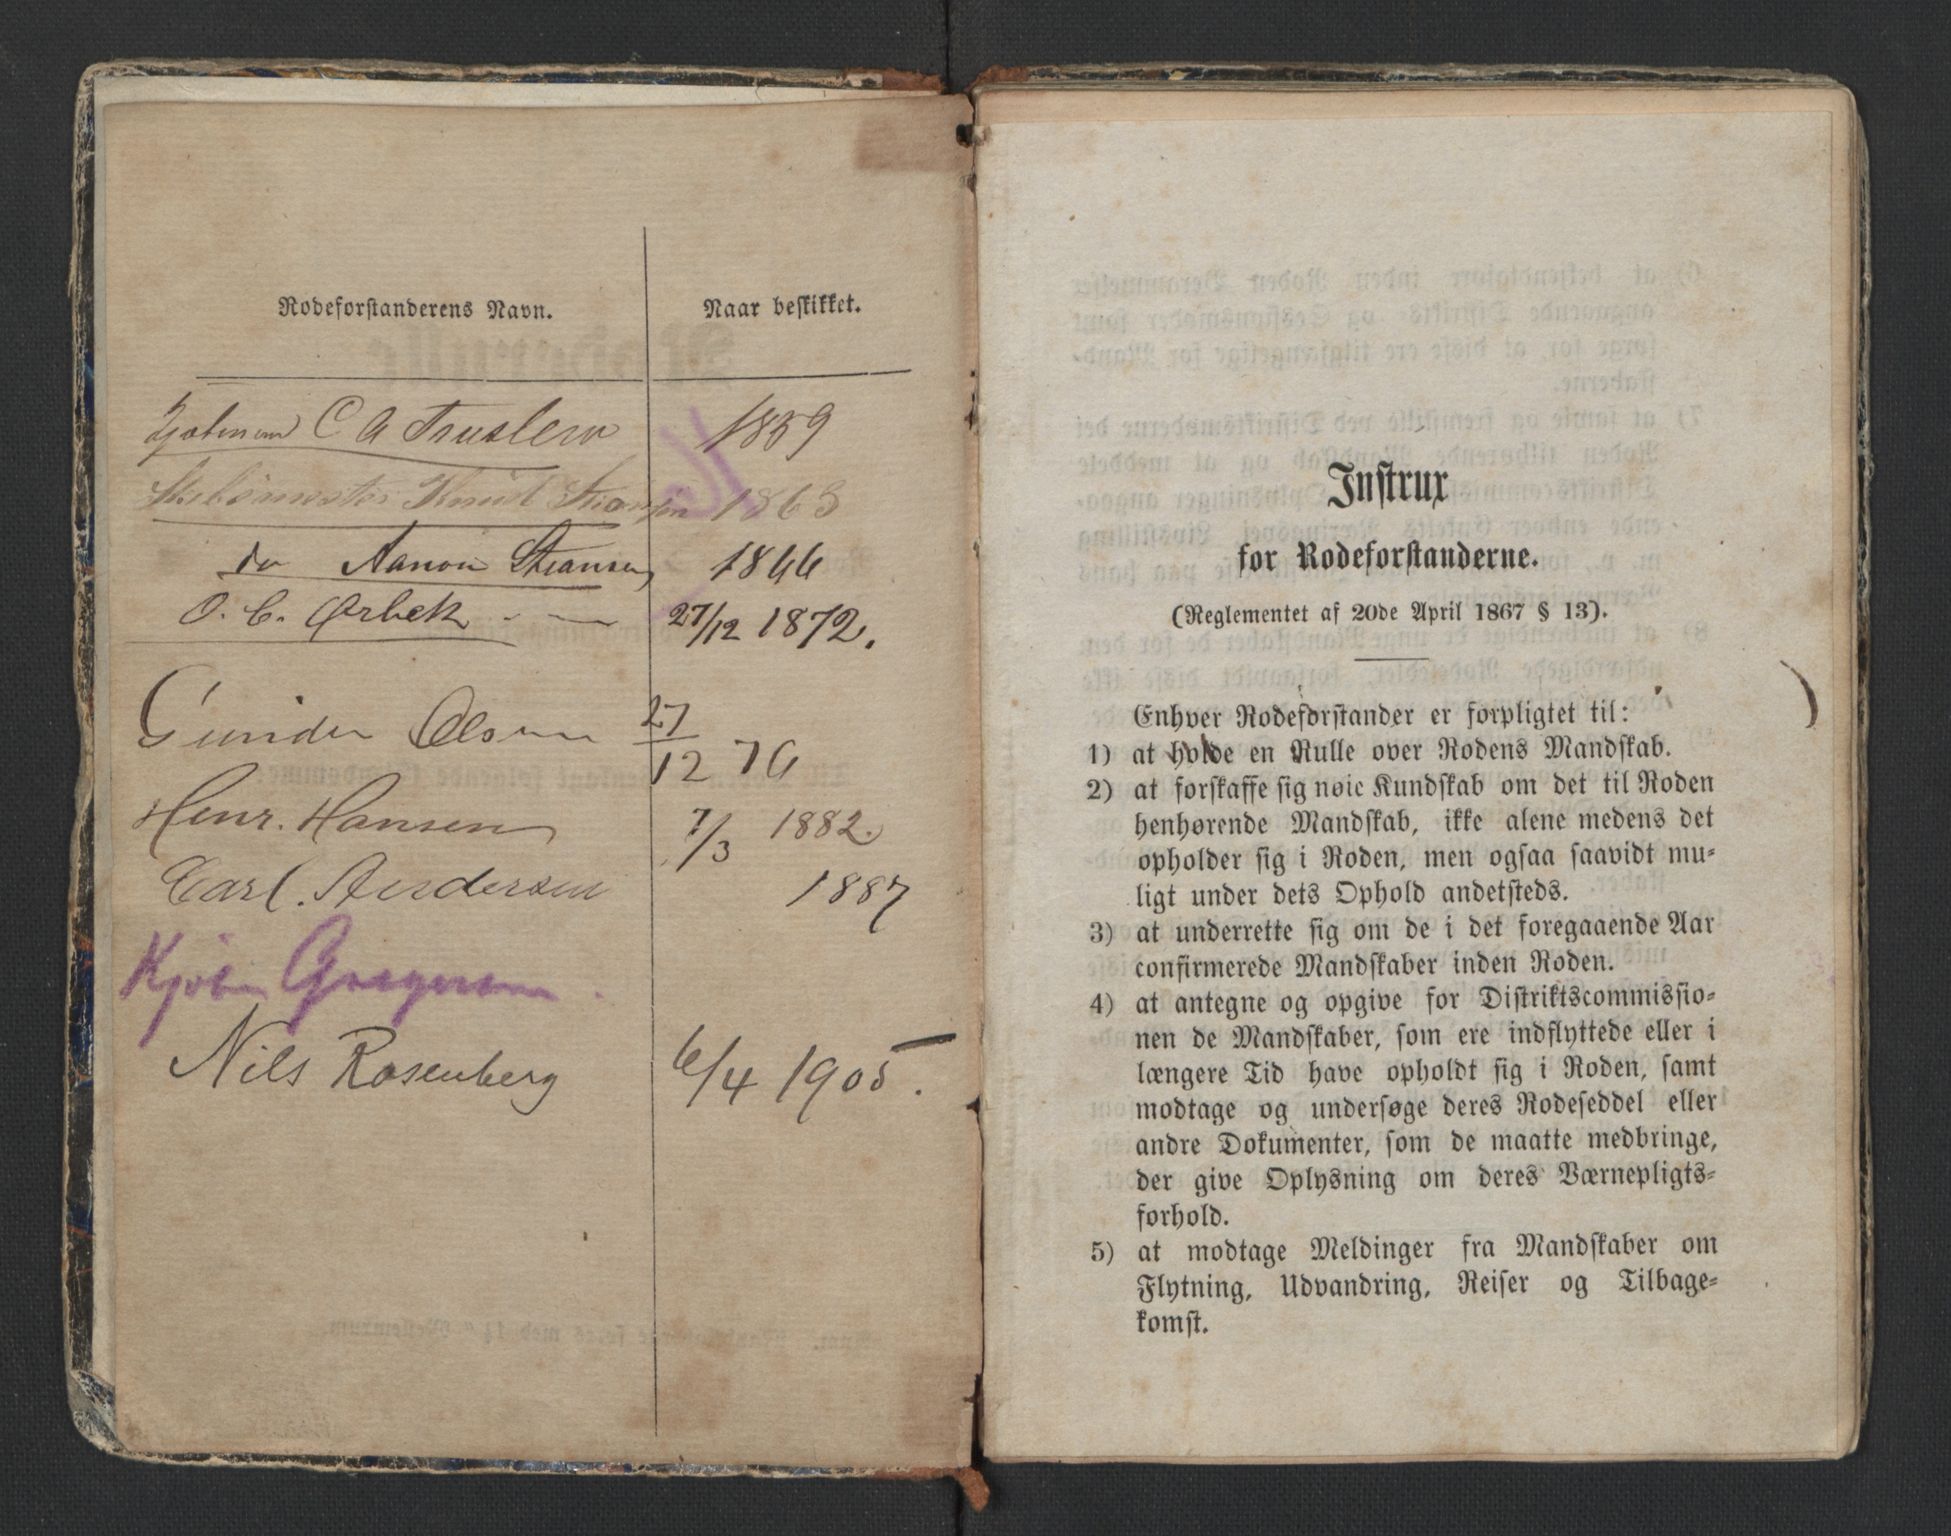 Rodeforstanderens Navn.
Naar beskikket.
C A Truslew 1859
Knud 1863
do Aanon Stiansen 1866
O. C. Ørbek 27/12 1872.
Gunder Olsen 27/12 76
Henr. Hansen 7/3 1882.
Carl. Andersen 1887
Kjøbm Gregersen.
Nils Rosenberg 6/4 1905.
Instrux
for Rodeforstanderne.
(Reglementet af 20de April 1867 § 13).
Enhver Rodeforstander er forpligtet til:
1) at holde en Rulle over Rodens Mandskab.
2) at forskaffe sig nøie Kundskab om det til Roden
henhørende Mandskab, ikke alene medens det
opholder sig i Roden, men ogsaa saavidt mu-
ligt under dets Ophold andetsteds.
3) at underrette sig om de i det foregaaende Aar
confirmerede Mandskaber inden Roden.
4) at antegne og opgive for Distriktscommissio-
nen de Mandskaber, som ere indflyttede eller i
længere Tid have opholdt sig i Roden, samt
modtage og undersøge deres Rodeseddel eller
andre Dokumenter, som de maatte medbringe,
der give Oplysning om deres Værnepligts-
forhold.
5) at modtage Meldinger fra Mandskaber om
Flytning, Udvandring, Reiser og Tilbage-
komst.